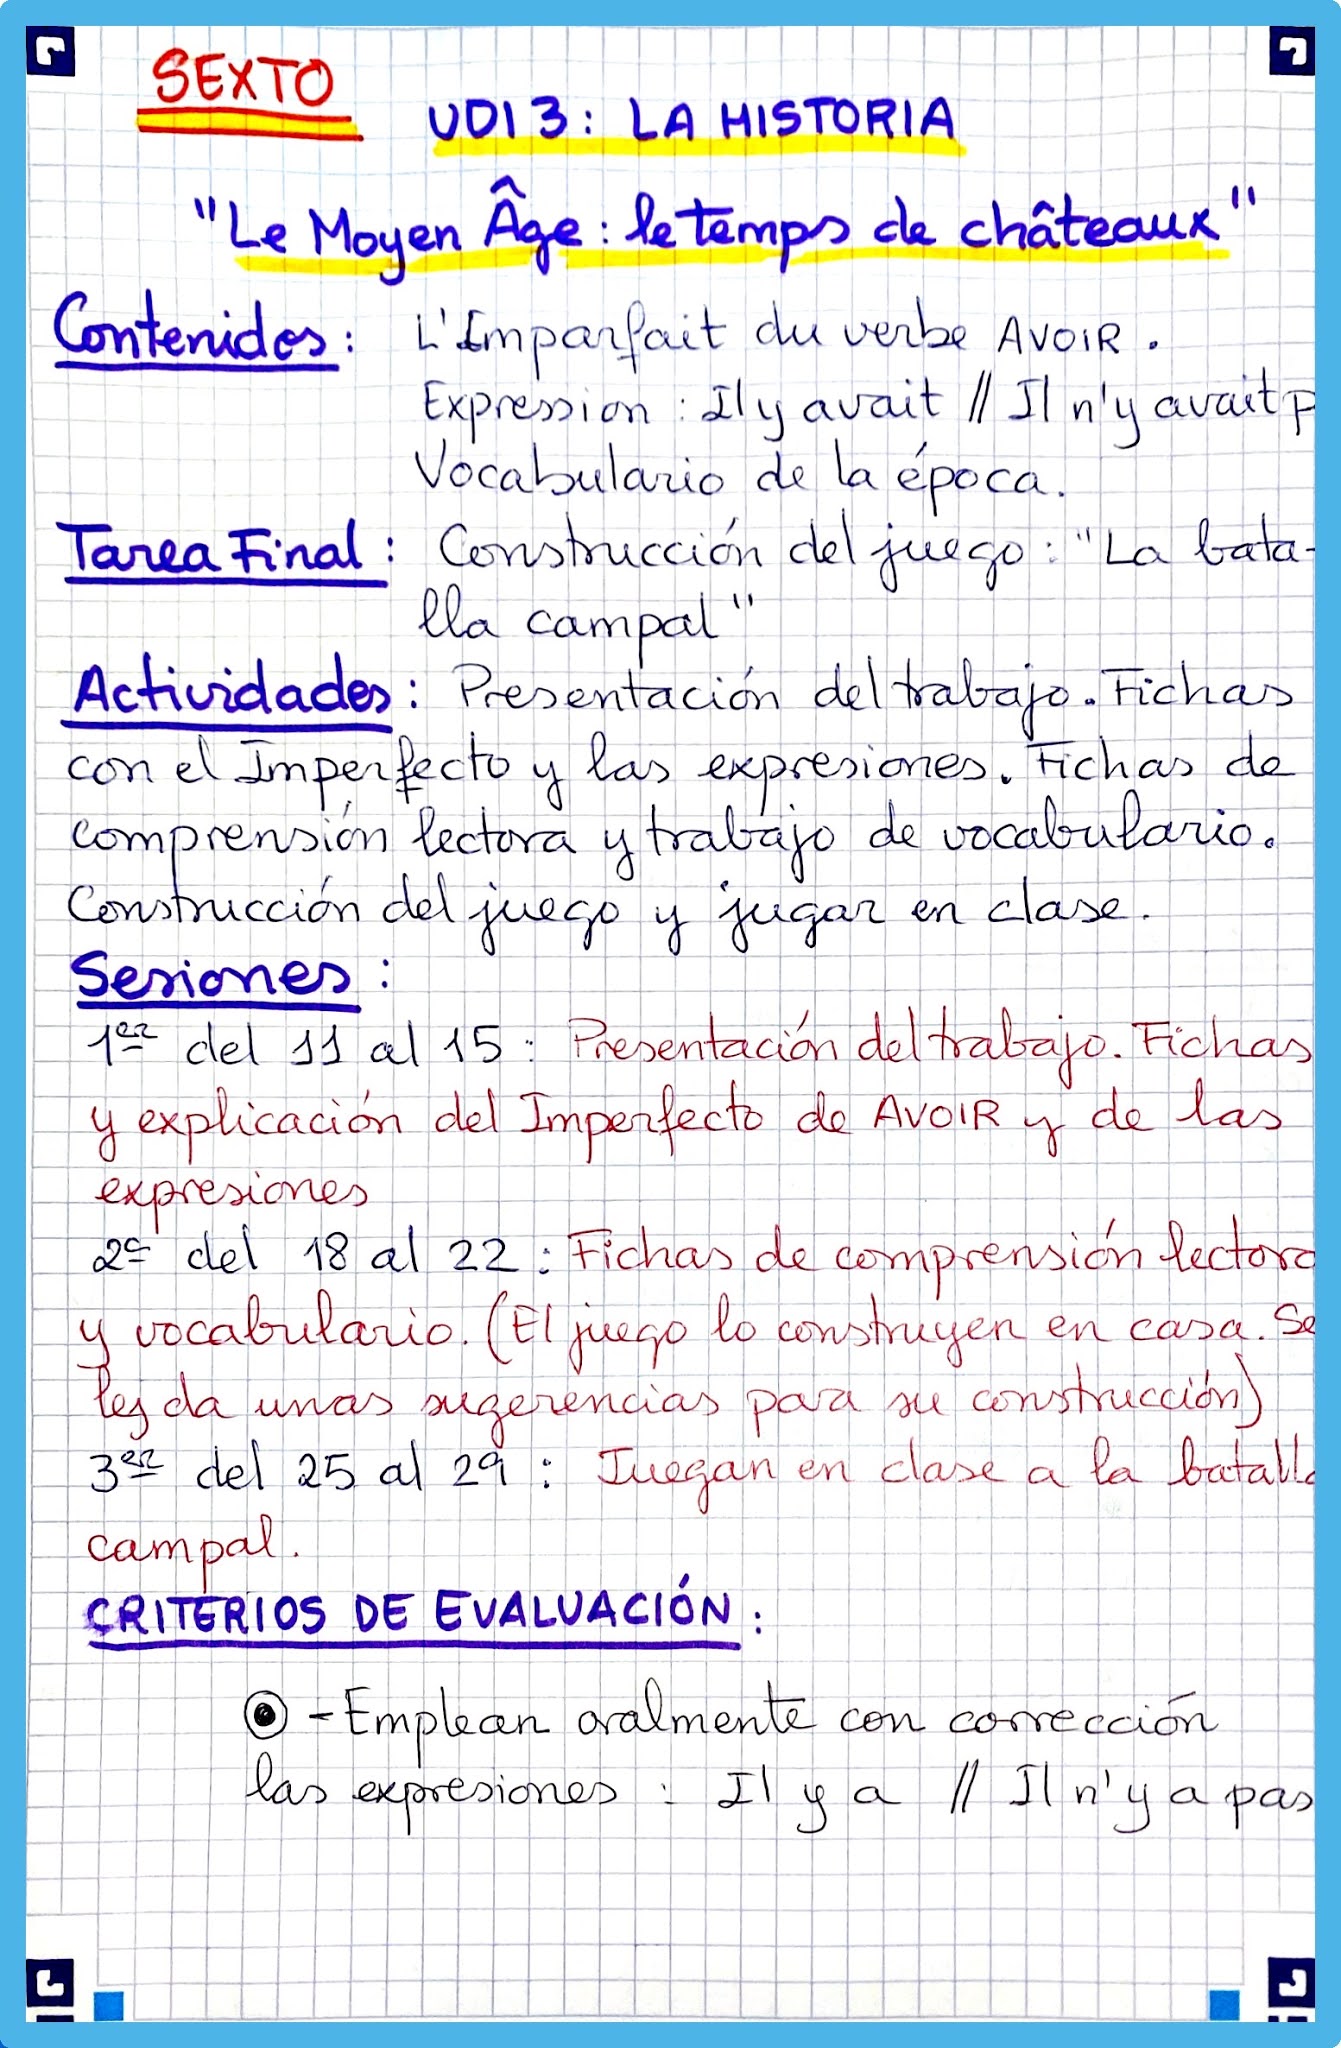 SEXTO
UDI 3: LA HISTORIA
"Le Moyen Âge: le temps de châteaux"
Contenidos: L'Imparfait du verbe AVOIR.
Expression: Il y avait // Il n'y avait p
Vocabulario de la época.
Tarea Final: Construcción del juego: "La bata-
lla campal"
Actividades: Presentación del trabajo. Fichas
con el Imperfecto y las expresiones. Fichas de
comprensión lectora y trabajo de vocabulario.
Construcción del juego y jugar en clase.
Sesiones:
1er del 11 al 15: Presentación del trabajo. Fichas
y explicación del Imperfecto de AVOIR y de las
expresiones
2ª del 18 al 22: Fichas de comprensión lectora
y vocabulario. (El juego lo construyen en casa. Se
les da unas sugerencias para su construcción)
3er del 25 al 29: Juegan en clase a la batalla
campal.
CRITERIOS DE EVALUACIÓN:
- Emplean oralmente con corrección
las expresiones: Il y a // Il n'y a pas